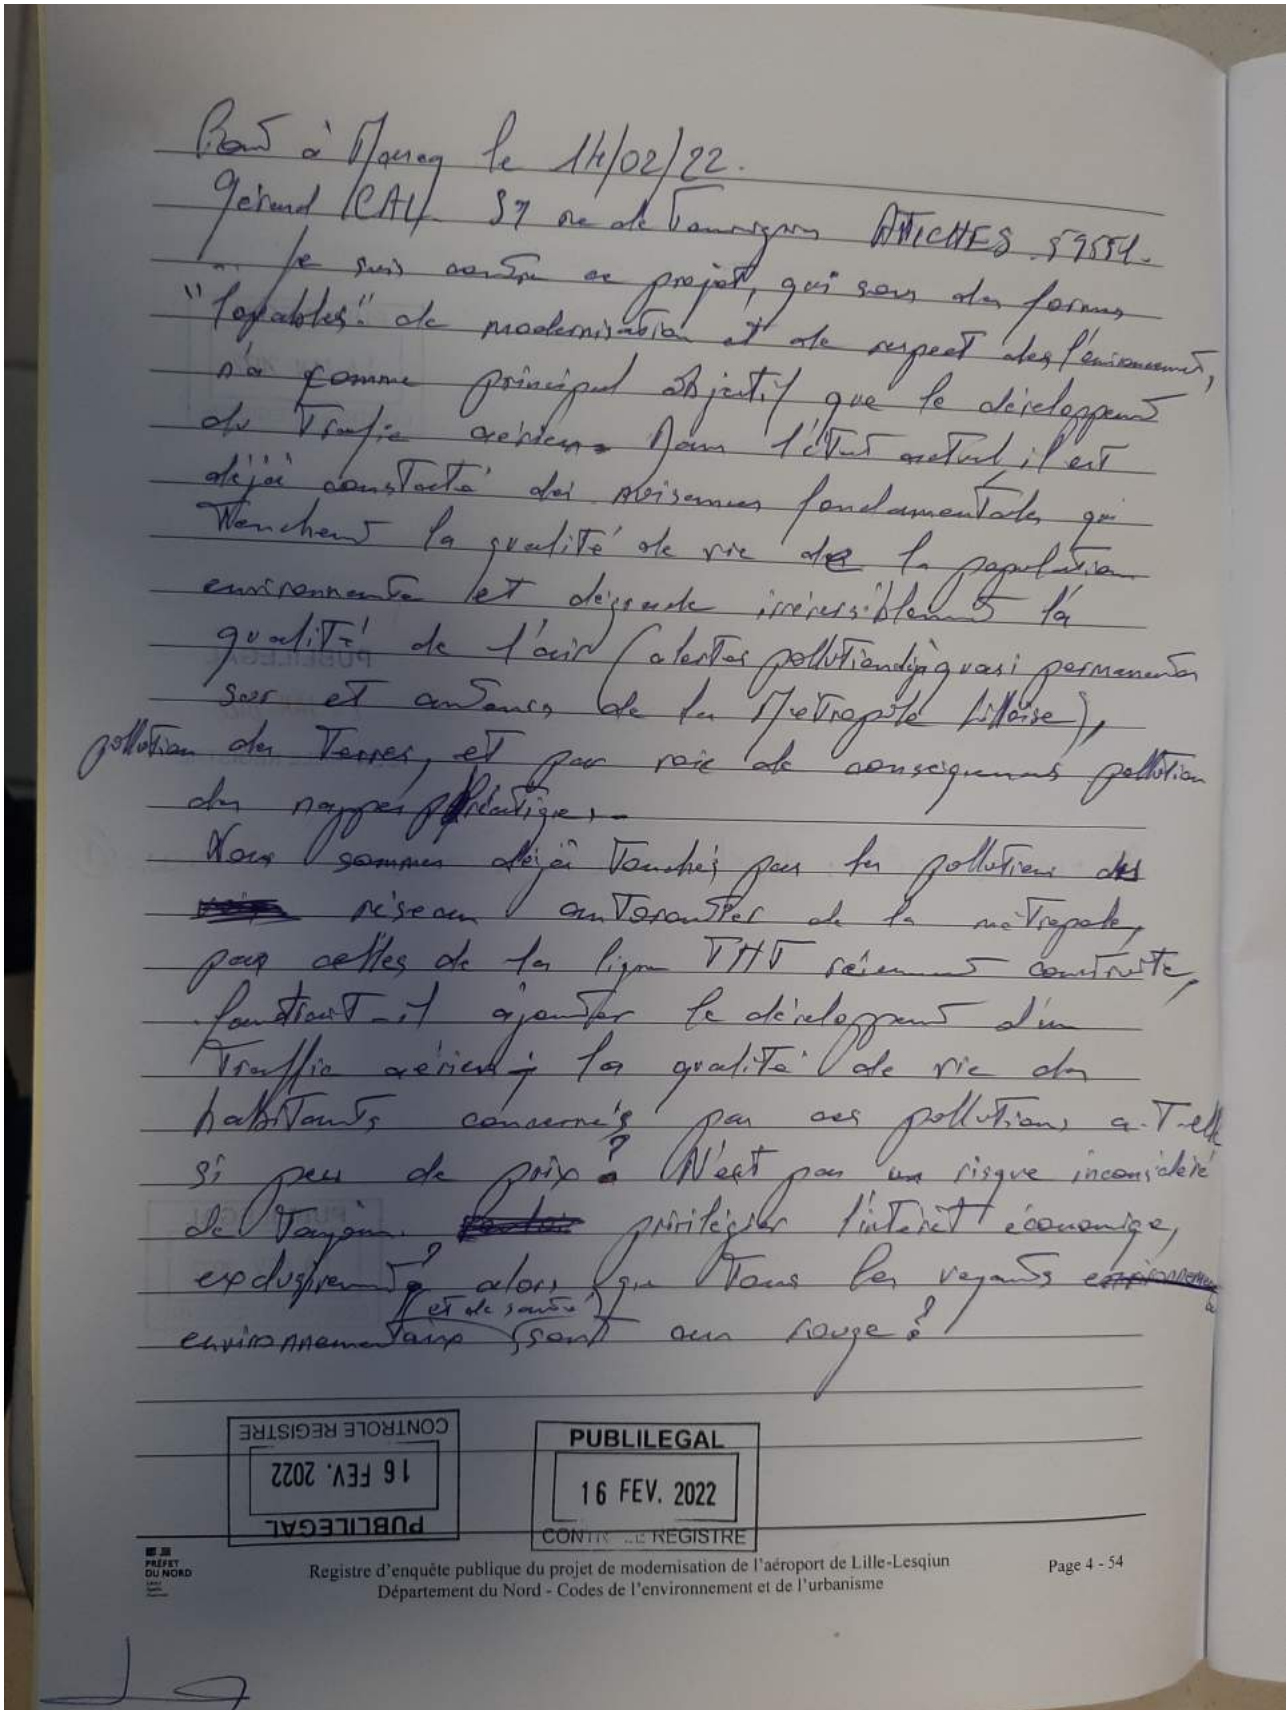 à le 14/02/22.
Gérard 37 rue de ATTICHES 59551.
Je suis contre ce projet, qui sous des formes
"louables" de modernisation et de respect des l'environnement,
n'a comme principal objectif que le développement
du Trafic aérien. Dans l'état actuel, il est
déjà constaté des nuisances fondamentales qui
Touchent la qualité de vie de la population
environnante et dégrade irréversiblement la
qualité de l'air (alertes pollution déjà quasi permanentes
sur et autours de la Métropole Lilloise),
pollution des Terres, et par voie de conséquences pollution
des nappes phréatiques.
Nous sommes déjà Touchés par la pollution des
réseau autoroutier de la métropole,
par celles de la ligne THT récemment construite,
faudrait-il ajouter le développement d'un
Traffic aérien; la qualité de vie des
habitants concernés par ces pollutions a-T-elle
si peu de prix? N'est pas un risque inconsidéré
de Toujours privilégier l'intérêt économique,
exclusivement? alors que Tous les voyants
(et de santé)
environnementaux sont au rouge?
CONTROLE REGISTRE
16 FEV. 2022
PUBLILEGAL
PUBLILEGAL
16 FEV. 2022
CONTROLE REGISTRE
PRÉFET
DU NORD
Registre d'enquête publique du projet de modernisation de l'aéroport de Lille-Lesqiun
Département du Nord - Codes de l'environnement et de l'urbanisme
Page 4 - 54